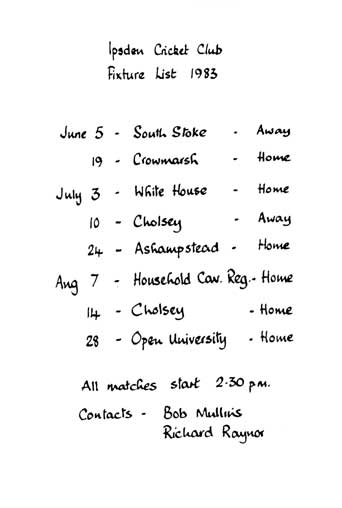 Ipsden Cricket Club
Fixture List 1983
June 5 - South Stoke - Away
19 - Crowmarsh - Home
July 3 - White House - Home
10 - Cholsey - Away
24 - Ashampstead - Home
Aug 7 - Household Cav. Reg. - Home
14 - Cholsey - Home
28 - Open University - Home
All matches start 2.30 pm.
Contacts - Bob Mullins
Richard Raynor